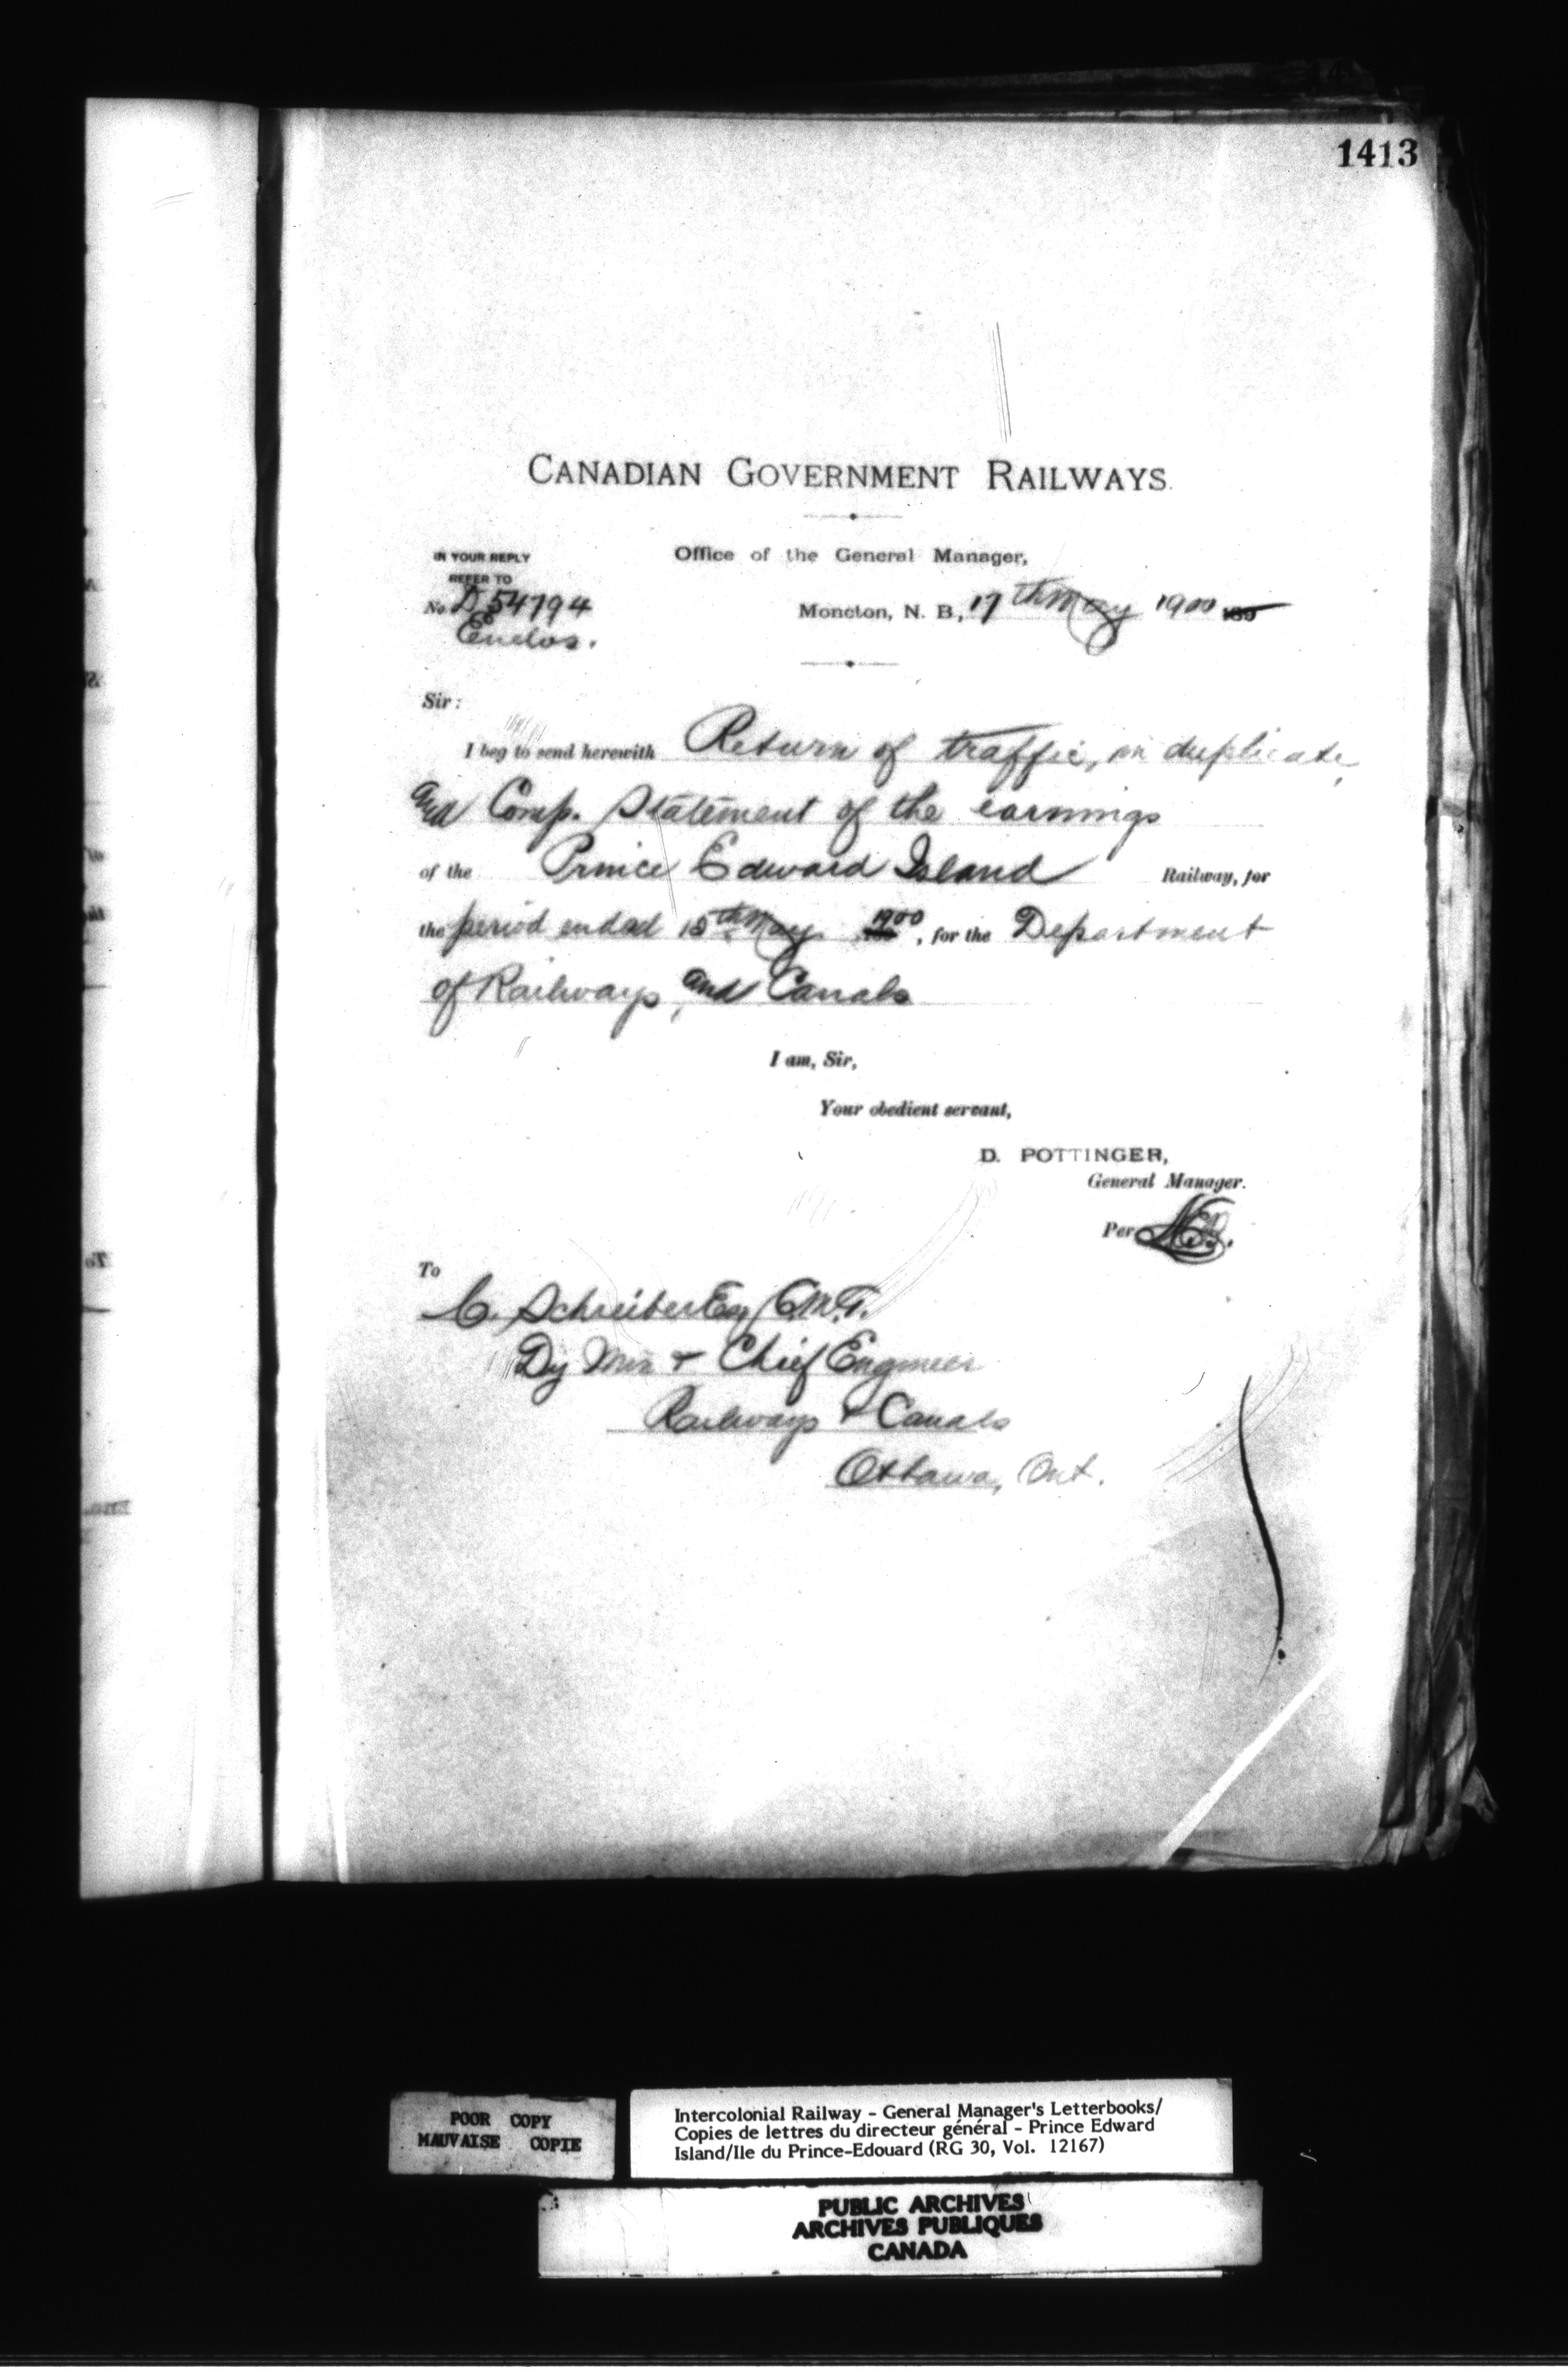 1413
CANADIAN GOVERNMENT RAILWAYS.
IN YOUR REPLY
REFER TO
Office of the General Manager,
No. D 54794
Enclos.
Moncton, N. B., 17th May 1900 189
Sir:
I beg to send herewith Return of traffic, in duplicate,
and Comp. Statement of the earnings
of the Prince Edward Island Railway, for
the period ended 15th May 1900, for the Department
of Railways, and Canals
I am, Sir,
Your obedient servant,
D. POTTINGER,
General Manager.
Per
To
C. Schreiber Esq C.M.G.
Dy Min & Chief Engineer
Railways & Canals
Ottawa, Ont.
POOR COPY
MAUVAISE COPIE
Intercolonial Railway - General Manager's Letterbooks/
Copies de lettres du directeur général - Prince Edward
Island/Ile du Prince-Edouard (RG 30, Vol. 12167)
PUBLIC ARCHIVES
ARCHIVES PUBLIQUES
CANADA